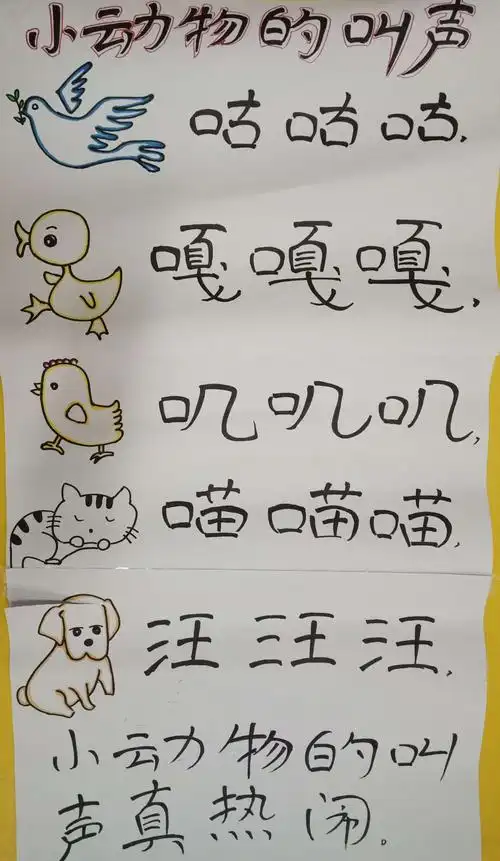 小动物的叫声
咕咕咕.
嘎嘎嘎,
叽叽叽,
喵喵喵.
汪汪汪.
小动物的叫
声真热闹。